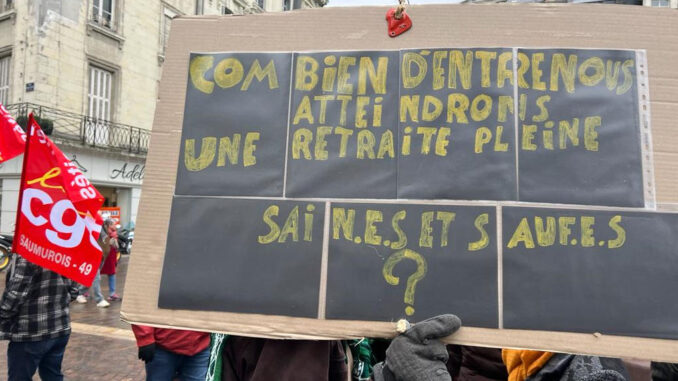 COMBIEN D'ENTRE NOUS
ATTEINDRONS
UNE RETRAITE PLEINE
SAIN.E.S ET SAUF.E.S
?
la
cgt
SAUMUROIS - 49
Adel